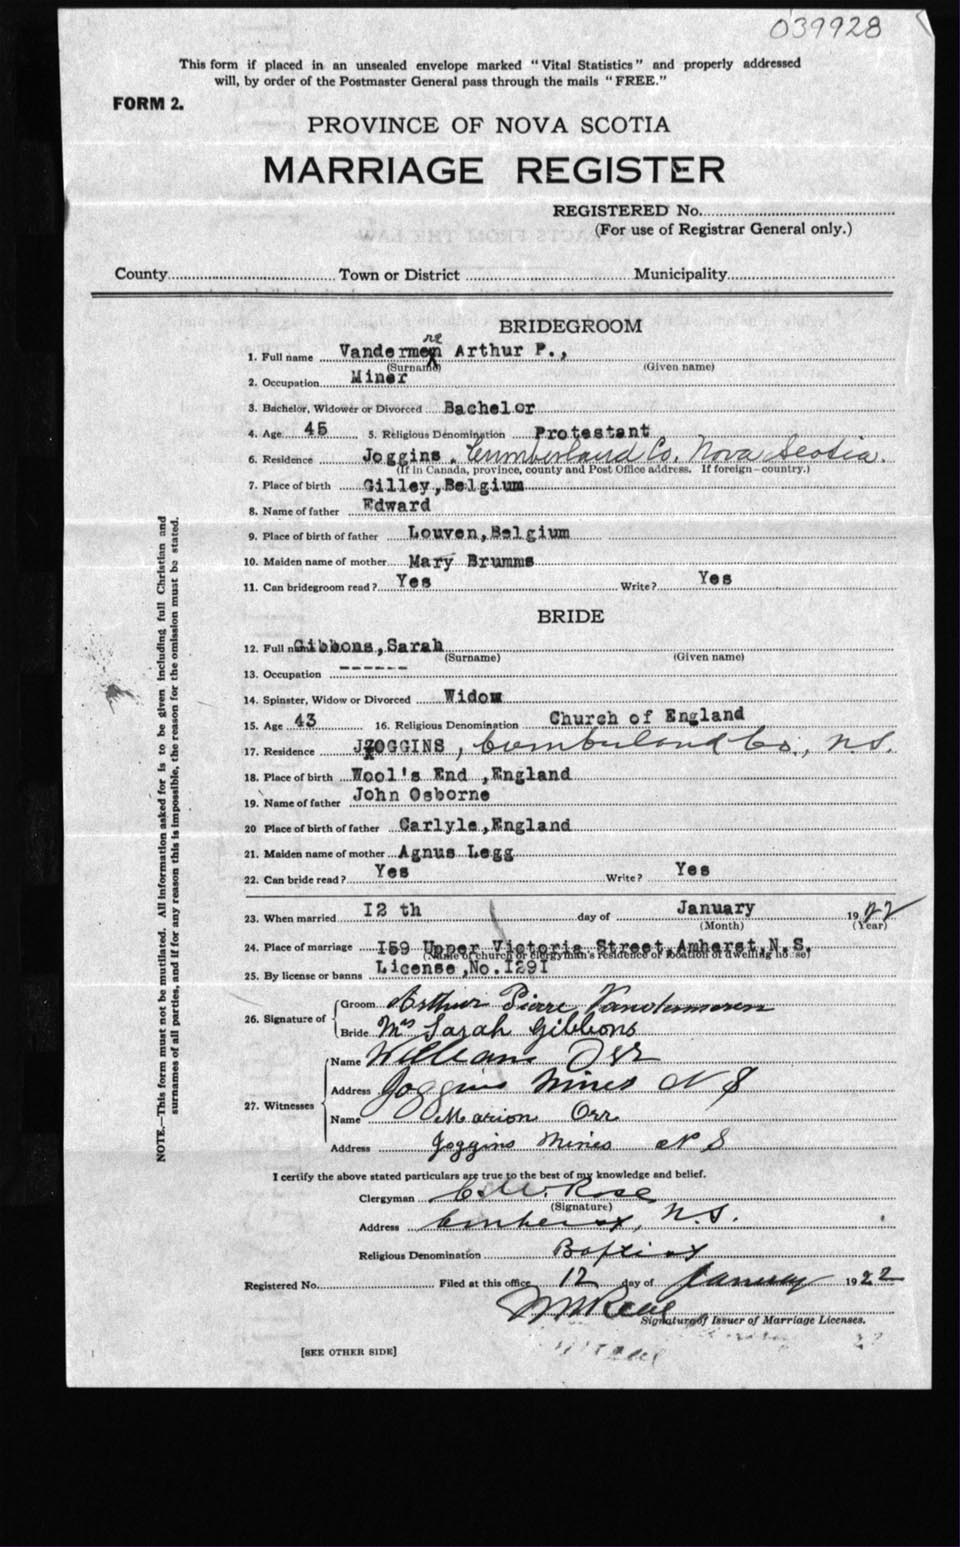 039928
This form if placed in an unsealed envelope marked "Vital Statistics" and properly addressed
will, by order of the Postmaster General pass through the mails "FREE."
FORM 2.
PROVINCE OF NOVA SCOTIA
MARRIAGE REGISTER
REGISTERED No.
(For use of Registrar General only.)
County Town or District Municipality
BRIDEGROOM
re
1. Full name Vandermen Arthur P.,
(Surname) (Given name)
2. Occupation Miner
3. Bachelor, Widower or Divorced Bachelor
4. Age 45 5. Religious Denomination Protestant
6. Residence Joggins, Cumberland Co. Nova Scotia.
(If in Canada, province, county and Post Office address. If foreign—country.)
7. Place of birth Gilley,Belgium
8. Name of father Edward
9. Place of birth of father Louven,Belgium
10. Maiden name of mother Mary Brumms
11. Can bridegroom read? Yes Write? Yes
BRIDE
12. Full name Gibbons,Sarah
(Surname) (Given name)
13. Occupation -------
14. Spinster, Widow or Divorced Widow
15. Age 43 16. Religious Denomination Church of England
17. Residence JOGGINS, Cumberland Co., N.S.
18. Place of birth Wool's End ,England
19. Name of father John Osborne
20 Place of birth of father Carlyle,England
21. Maiden name of mother Agnus Legg
22. Can bride read? Yes Write? Yes
23. When married I2 th day of January 1922
(Month) (Year)
24. Place of marriage I59 Upper Victoria Street,Amherst,N.S.
(Name of church or clergyman's residence or location of dwelling house)
25. By license or banns License,No.I29I
26. Signature of Groom Arthur Pierre Vandermeren
Bride Mrs Sarah Gibbons
27. Witnesses Name William Orr
Address Joggins Mines N S
Name Marion Orr
Address Joggins Mines N S
I certify the above stated particulars are true to the best of my knowledge and belief.
Clergyman Rose
(Signature)
Address Amherst, N.S.
Religious Denomination Baptist
Registered No. Filed at this office 12 day of January 1922
Signature of Issuer of Marriage Licenses.
[SEE OTHER SIDE]
NOTE.—This form must not be mutilated. All information asked for is to be given including full Christian and
surnames of all parties, and if for any reason this is impossible, the reason for the omission must be stated.